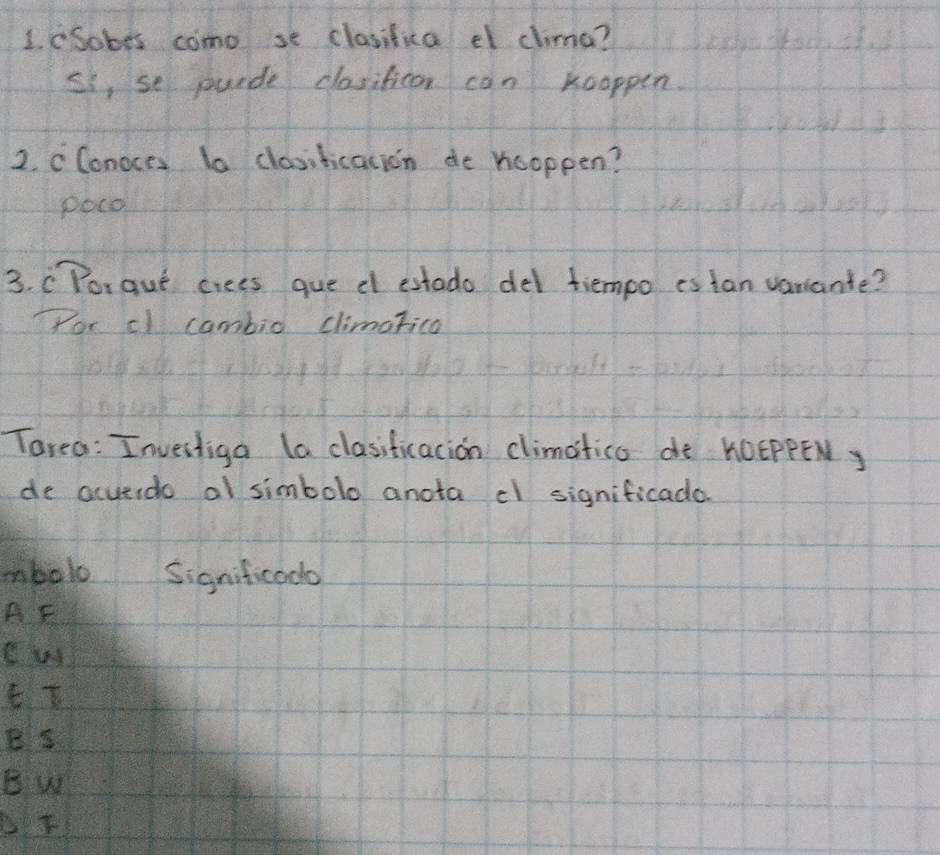 1. ¿Sabes como se clasifica el clima?
Si, se puede clasificar con Kooppen.
2. ¿Conoces la clasificación de Kooppen?
poco
3. ¿Porqué crees que el estado del tiempo es tan variante?
Por el cambio climatico
Tarea: Investiga la clasificación climática de KOEPPEN y
de acuerdo al simbolo anota el significado.
mbolo Significado
A F
C W
E T
B S
B W
D F